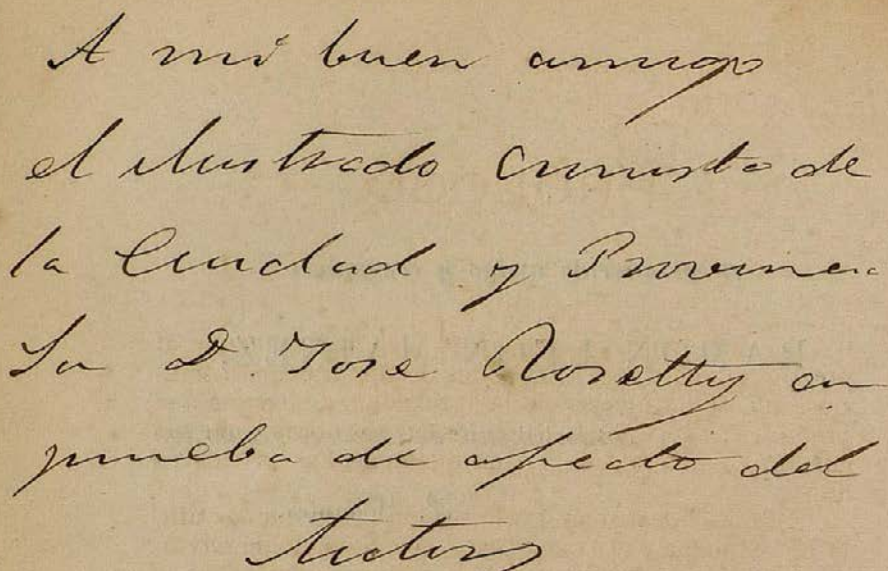 A mi buen amigo
el ilustrado Cronista de
la Ciudad y Provincia
Sr D. Jose Rosetty en
prueba de afecto del
Autor